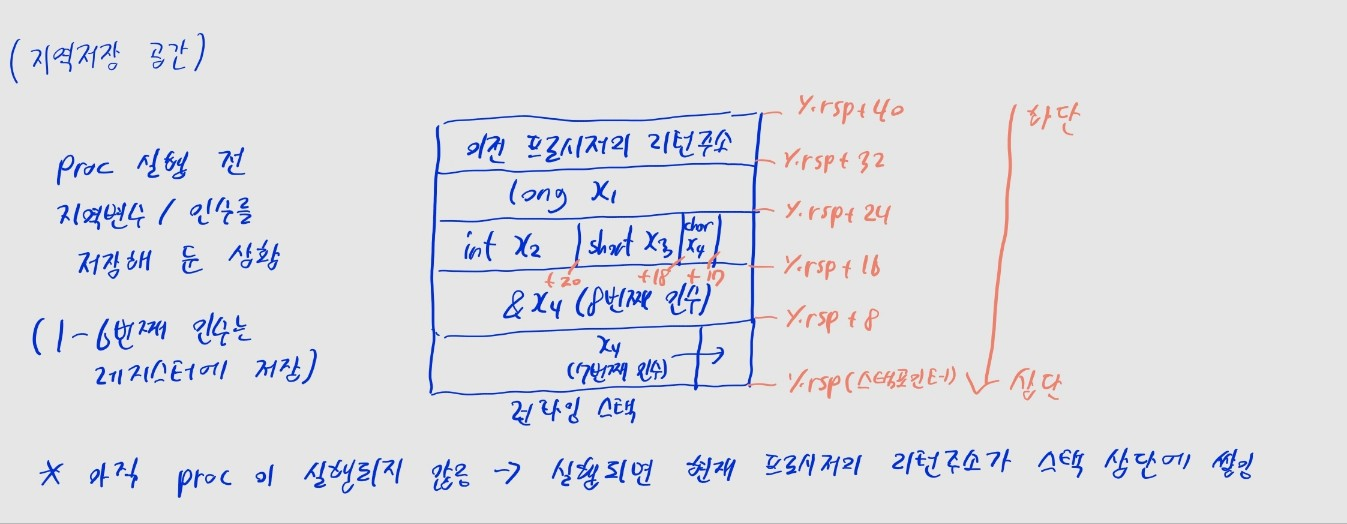 (지역저장 공간)
proc 실행 전
지역변수 / 인수를
저장해 둔 상황
(1-6번째 인수는
레지스터에 저장)
이전 프로시저의 리턴주소
long x1
int x2 short x3 char x4
+20 +18 +17
&x4 (8번째 인수)
x4 →
(7번째 인수)
런타임 스택
%rsp+40
%rsp+32
%rsp+24
%rsp+16
%rsp+8
%rsp(스택포인터)
하단
상단
* 아직 proc이 실행되지 않음 → 실행되면 현재 프로시저의 리턴주소가 스택 상단에 쌓임